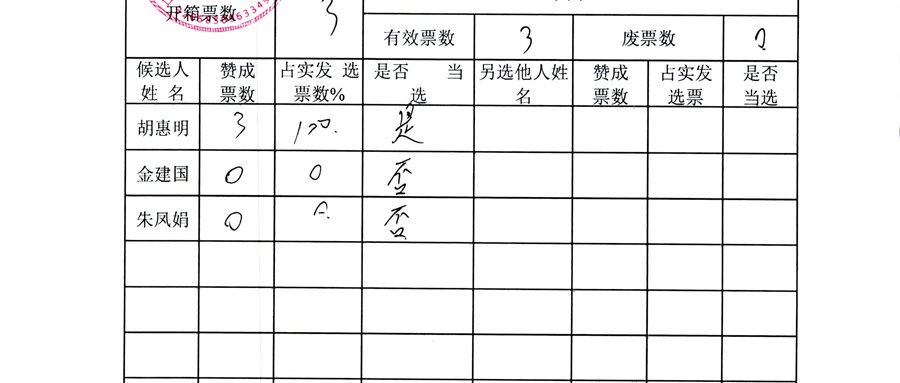 开箱票数 3
有效票数 3 废票数 0
候选人姓名 赞成票数 占实发选票数% 是否当选 另选他人姓名 赞成票数 占实发选票 是否当选
胡惠明 3 100. 是
金建国 0 0 否
朱凤娟 0 0 否